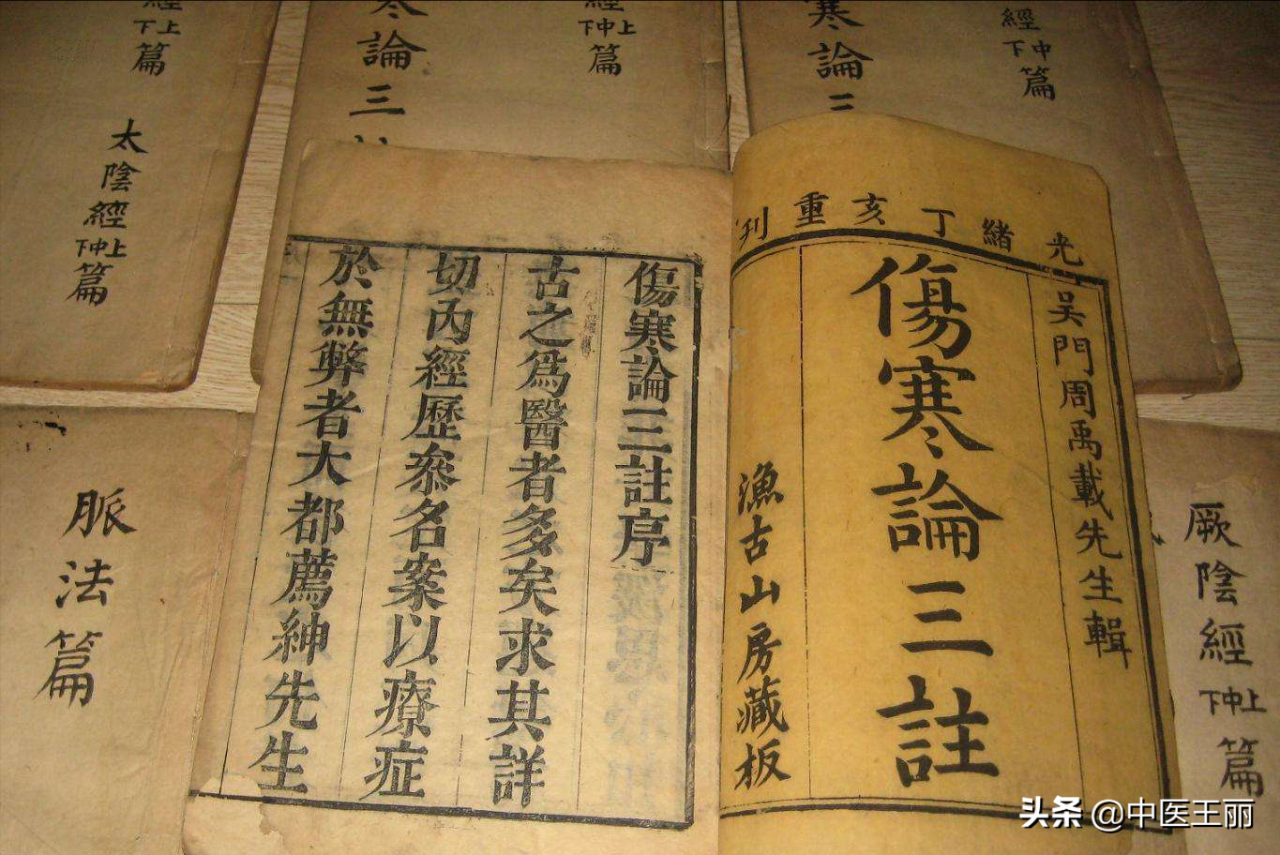 光緒丁亥重刊
吳門周禹載先生輯
傷寒論三註
漁古山房藏板
傷寒論三註序
古之為醫者多矣求其詳
切內經歷叅名案以療症
於無弊者大都薦紳先生
經
上中下
篇
太陰經
上中下
篇
寒論三
經
上中下
篇
寒論三
經
中下
篇
脈法篇
厥陰經
上中下
篇
头条 @中医王丽